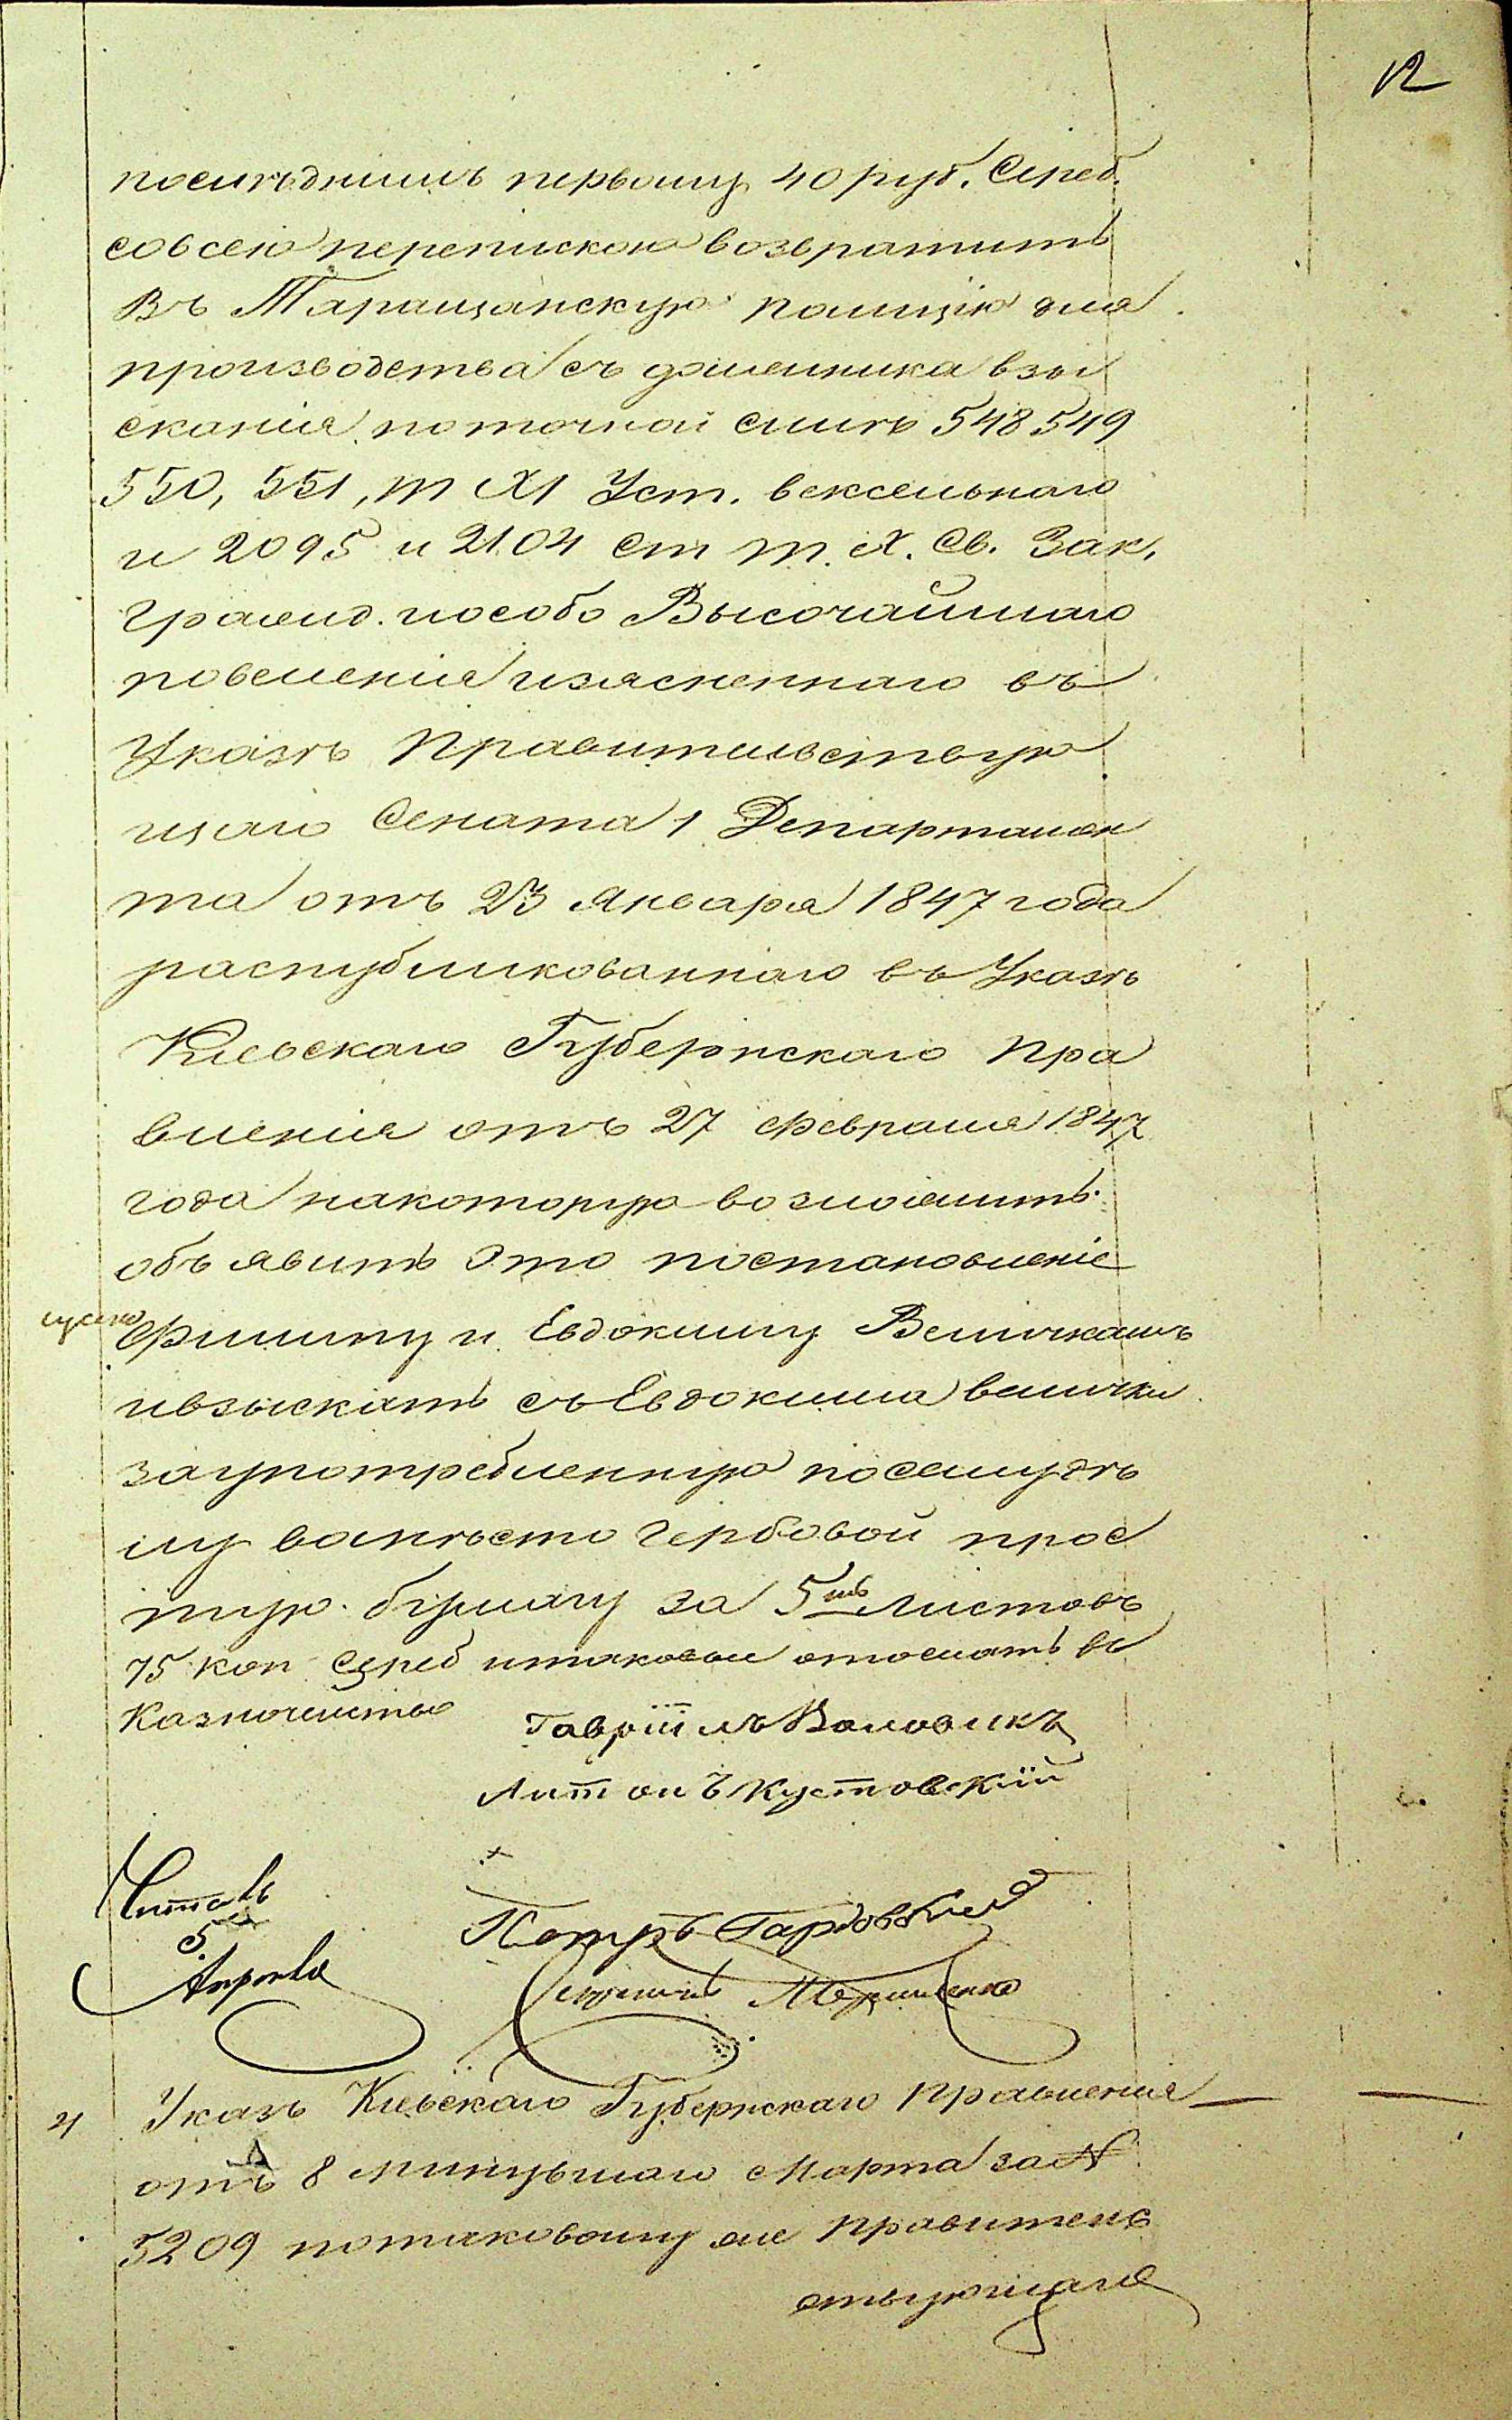 12
последнимъ первому 40 руб. Сереб.
совсею перепискою возвратить
въ Таращанскую полицію для
производства съ должника взы
сканія поточной силѣ 548 549
550, 551, т XI Уст. вексельнаго
и 2095 и 2104 ст т. X. Св. Зак.
Гражд. иособо Высочайшаго
повеленія изясненнаго въ
Указѣ Правительствую
щаго Сената 1 Департамен
та отъ 23 января 1847 года
распубликованнаго въ Указѣ
Кіевскаго Губернскаго Пра
вленія отъ 27 февраля 1847
года накоторую возложить
объявить Это постановленіе
Филипу и Евдокиму Величкамъ
ивзыскать съ Евдокима велички
заупотребленную посемудѣ
лу вомѣсто гербовой прос
тую бумагу за 5ть листовъ
75 коп Сереб итаковые отослать въ
Казначейство
Гавріилъ Воловикъ
Антонъ Кустовскій
Читалъ
5
Апреля
Петръ
Указъ Кіевскаго Губернскаго Правленія
отъ 8 минувшаго Марта за N
5209 потаковому же Правитель
ствующаго